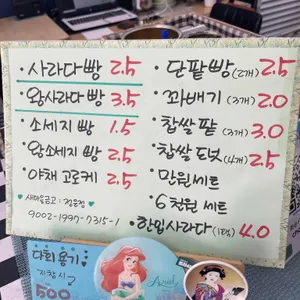 · 사라다빵 2.5
· 왕사라다빵 3.5
· 소세지빵 1.5
· 왕소세지빵 2.5
· 야채 고로케 2.5
· 새마을금고 : 정윤정
9002-1997-7315-1
· 단팥빵 (2개) 2.5
· 꽈배기 (3개) 2.0
· 찹쌀팥 (3개) 3.0
· 찹쌀도넛 (4개) 2.5
· 만원세트
· 6천원 세트
· 한입사라다 (1팩) 4.0
다회용기
지참시
500
Ariel